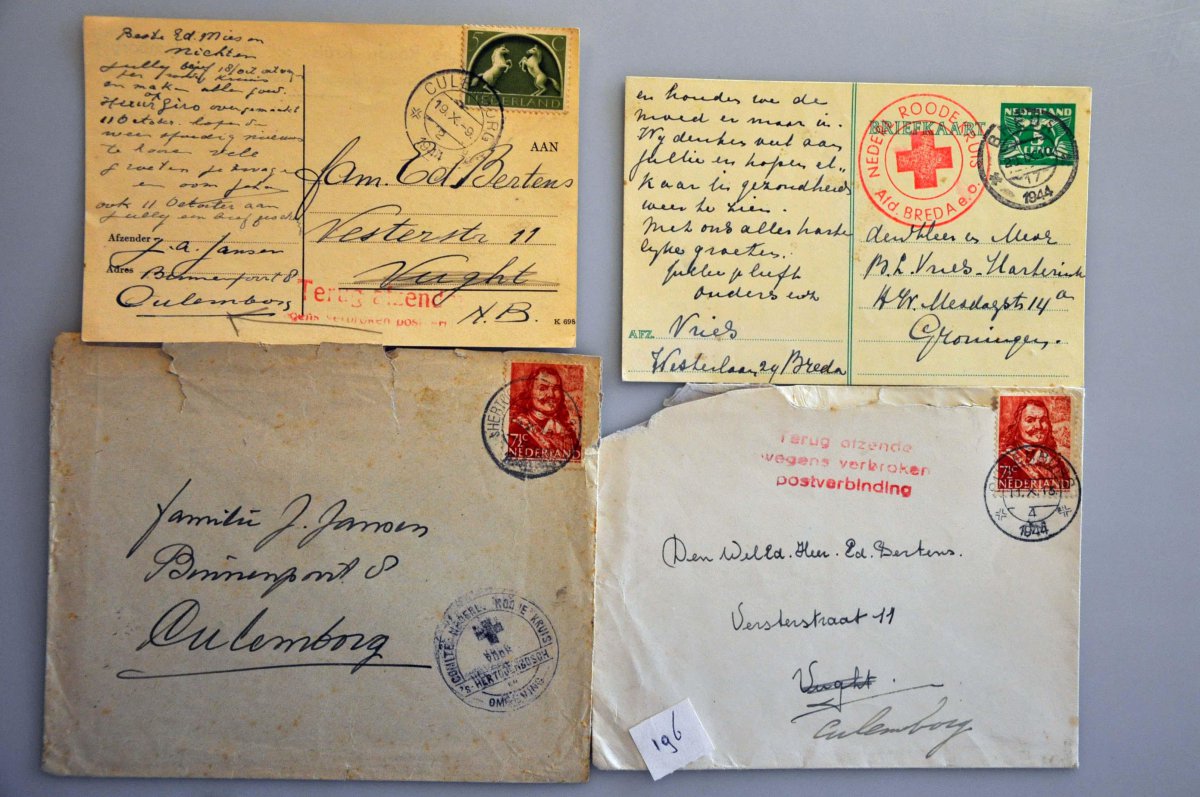 Beste Ed. Mies en
Nichten
Jully brief 18/oct ontvangen
en maken allen goed.
Heeren Giro overgemaakt
11 October. hopen
weer spoedig nieuws
te horen vele
groeten zwager
en oom Johan
ook 11 October aan
Jully een brief
Afzender J. A. Jansen
Adres Binnenpoort 8
Culemborg
5 C
NEDERLAND
CULEMBORG
19.X. 9
2
1944
AAN
Fam. Ed Bertens
Vesterstr 11
Vught
N.B.
Terug afzend
wegens verbroken post
K 698
en houden we de
moed er maar in.
Wij denken veel aan
jullie en hopen el-
kaar in gezondheid
weer te zien.
Met ons alles harte
lijke groeten.
Jullie
ouders
AFZ. Vries
Westerlaan 29 Breda
BRIEFKAART
NEDERL. ROODE KRUIS
Afd. BREDA e.o.
NEDERLAND
5
CENT
17
1944
den Heer en Mevr
B. L. Vries-Harterink
H. W. Mesdagstr 14a
Groningen.
'SHERTOGENBOSCH
7½C
NEDERLAND
Familie J. Jansen
Binnenpoort 8
Culemborg
COMITÉ NEDERL. ROODE KRUIS
VOOR
'S-HERTOGENBOSCH
EN
OMGEVING
Terug afzende
wegens verbroken
postverbinding
7½C
NEDERLAND
CULEMBORG
11.X.18
4
1944
Den WelEd. Heer. Ed. Bertens.
Versterstraat 11
Vught.
Culemborg
196